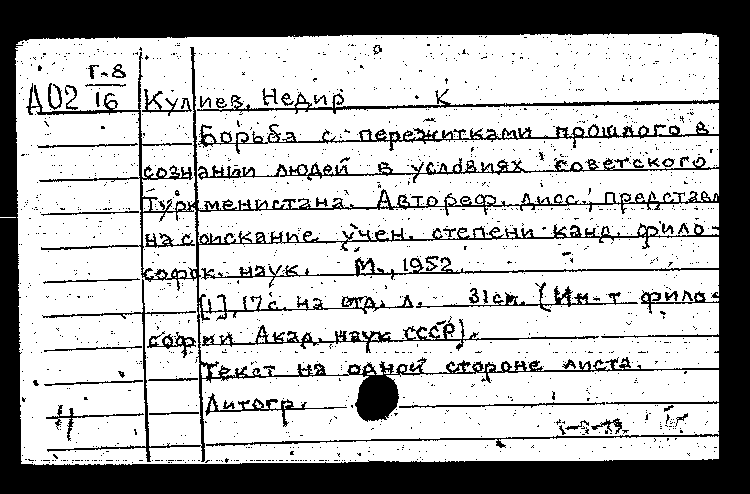 Г-8
А02 16 Кулиев, Недир К
Борьба с пережитками прошлого в
сознании людей в условиях советского
Туркменистана. Автореф. дисс., представл
на соискание учен. степени канд. фило-
софск. наук. М., 1952.
[1], 17с. на отд. л. 31см. (Ин-т фило-
софии Акад. наук СССР).
Текст на одной стороне листа.
Литогр.